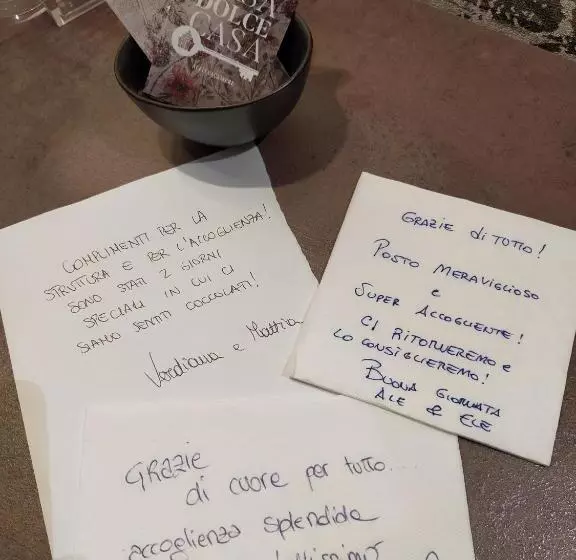 DOLCE
CASA
COMPLIMENTI PER LA
STRUTTURA E PER L'ACCOGLIENZA!
SONO STATI 2 GIORNI
SPECIALI IN CUI CI
SIAMO SENTITI COCCOLATI!
Verdiana e Mattia
GRAZIE di TUTTO!
POSTO MERAVIGLIOSO
e
SUPER ACCOGLIENTE!
CI RITORNEREMO e
LO CONSIGLIEREMO!
BUONA GIORNATA
ALE & ECE
GRAZIE
di cuore per tutto....
accoglienza splendida